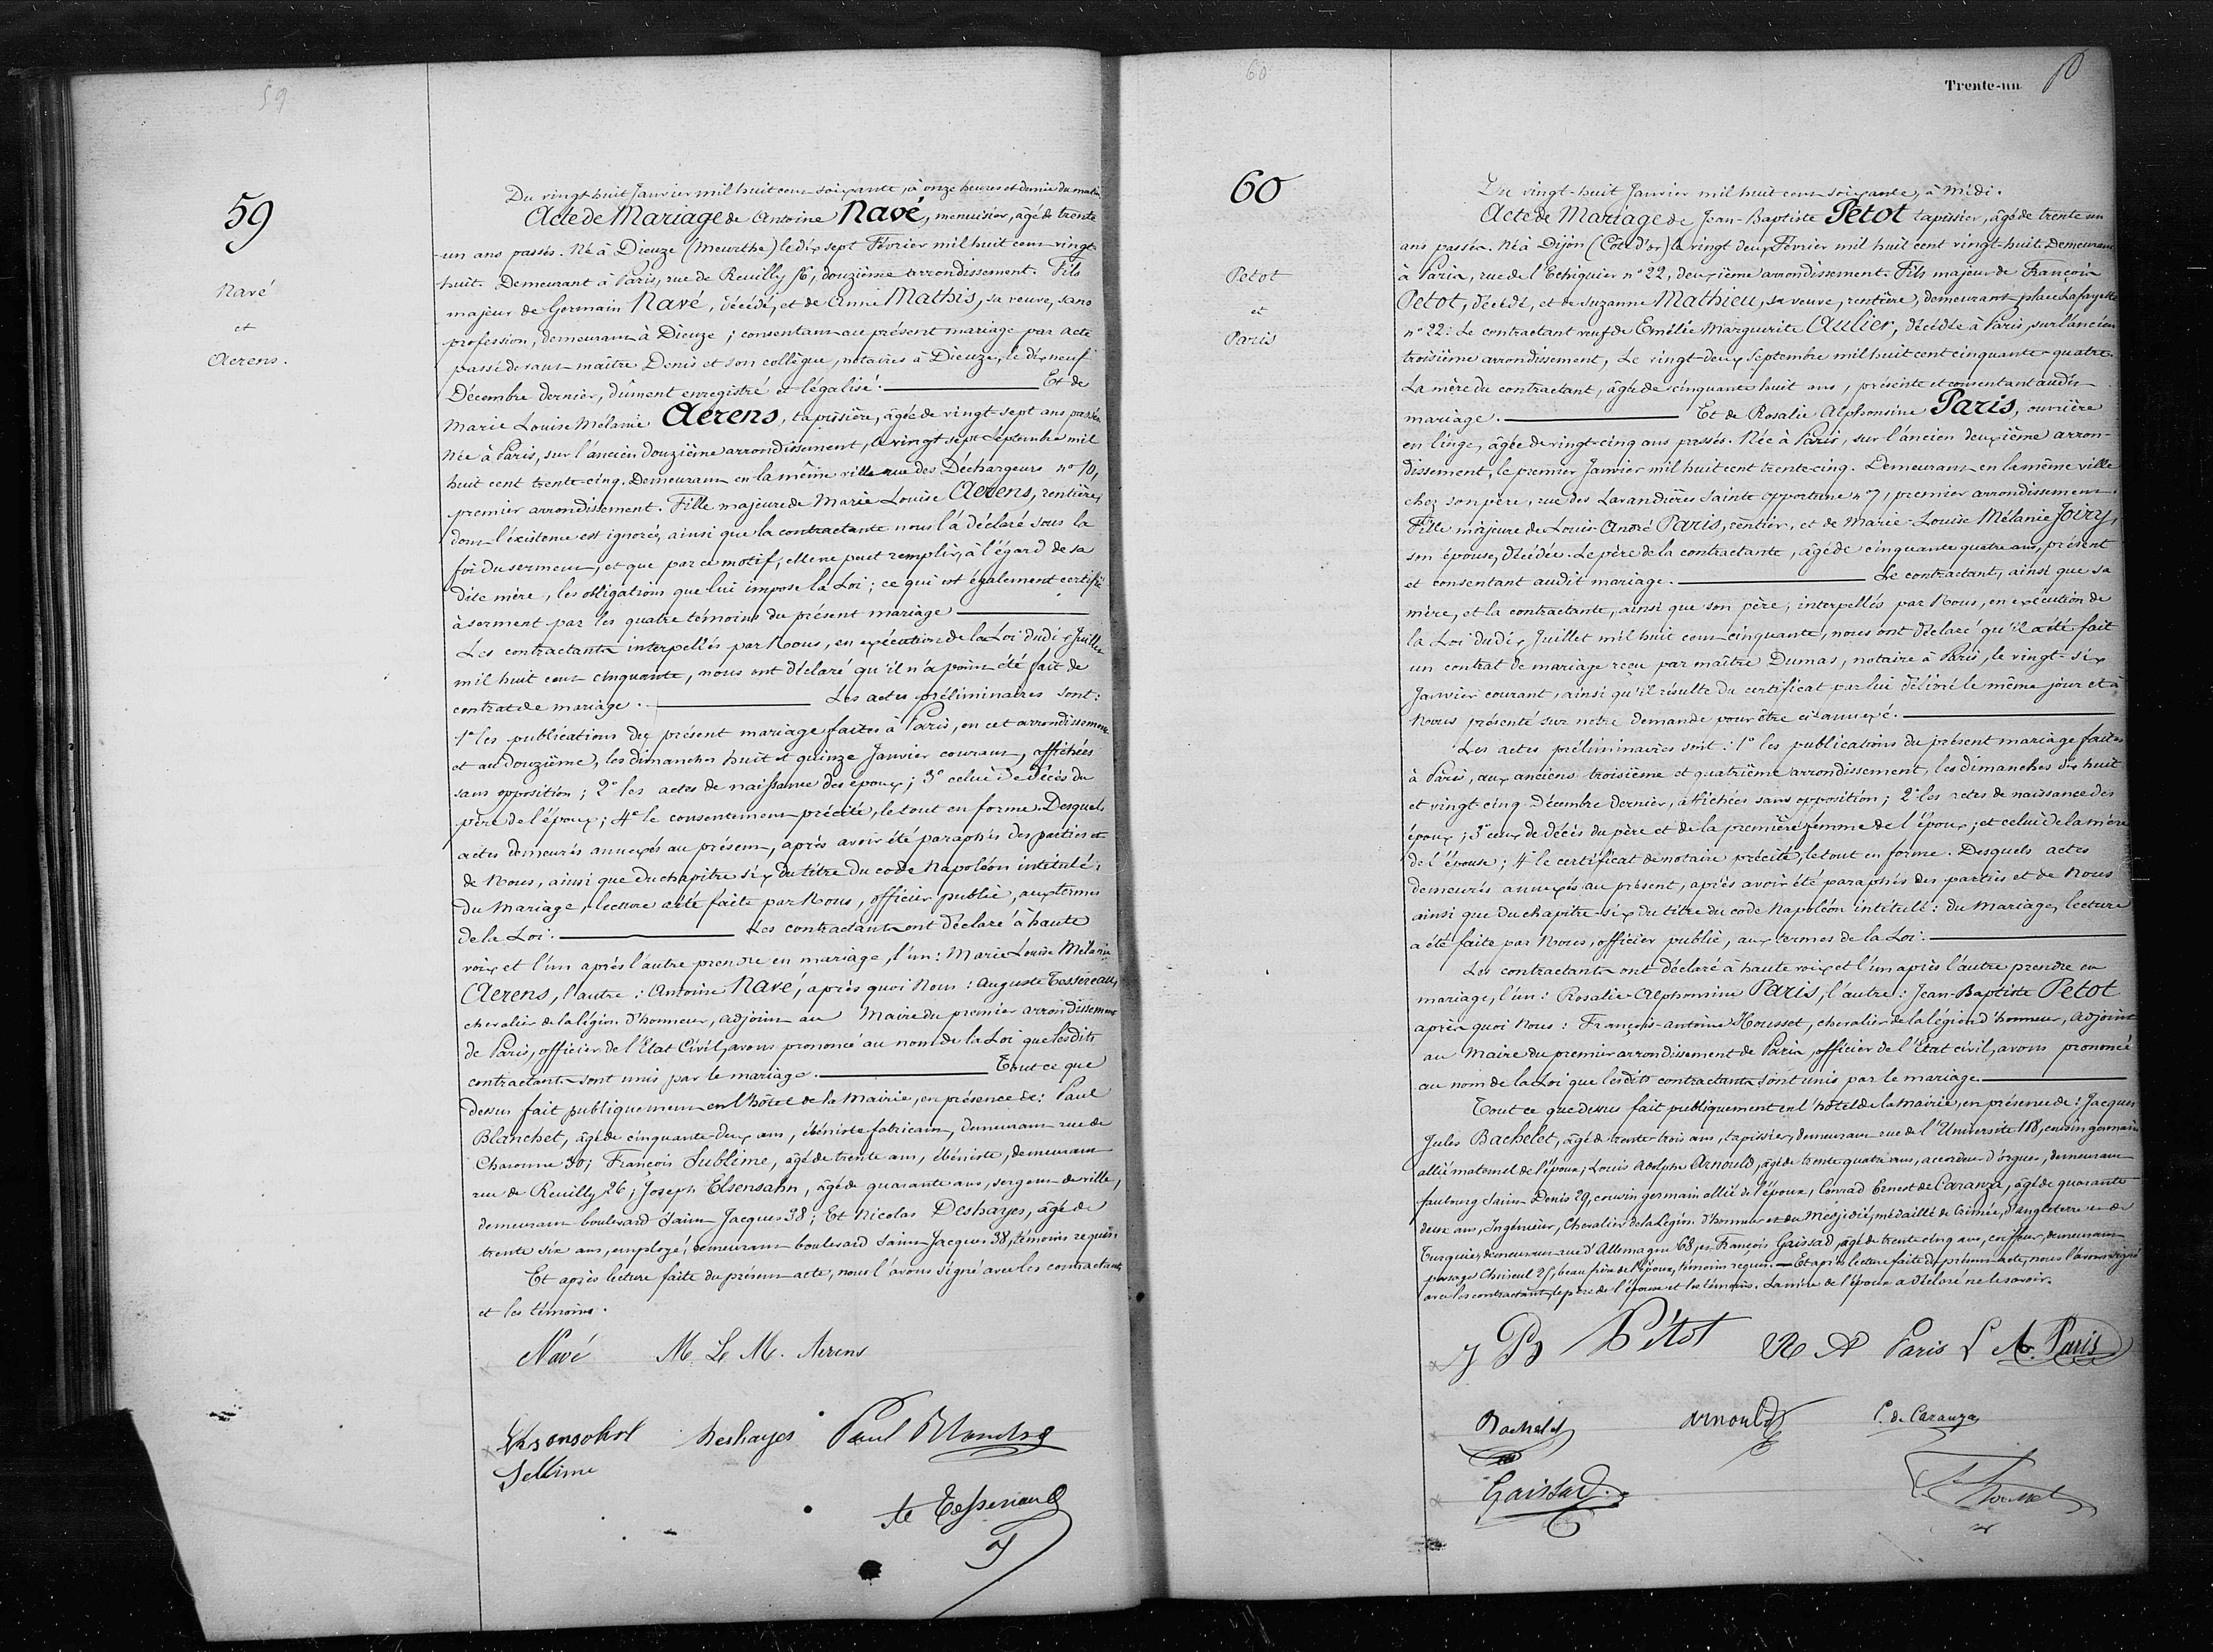 59
59
Navé
et
Aerens.
Du vingt-huit Janvier mil huit cent soixante, à onze heures et demie du matin
Acte de Mariage de Antoine Navé, menuisier, âgé de trente
-un ans passés. Né à Dieuze (Meurthe) le dix sept Février mil huit cent vingt-
huit. Demeurant à Paris, rue de Reuilly, douzième arrondissement. Fils
majeur de Germain Navé, décédé, et de Anne Mathis, sa veuve, sans
profession, demeurant à Dieuze; consentant au présent mariage par acte
passé devant maître Denis et son collègue, notaires à Dieuze, le dix neuf
Décembre dernier, dûment enregistré et légalisé. Et de
Marie Louise Mélanie Aerens, tapissière, âgée de vingt-sept ans passés
Née à Paris, sur l'ancien douzième arrondissement, le vingt sept Septembre mil
huit cent trente-cinq. Demeurant en la même ville rue des Déchargeurs n° 10,
premier arrondissement. Fille majeure de Marie Louise Aerens, rentière,
dont l'existence est ignorée, ainsi que la contractante nous l'a déclaré sous la
foi du serment, et que par ce motif, elle ne peut remplir, à l'égard de sa
dite mère, les obligations que lui impose la Loi; ce qui est également certifié
à serment par les quatre témoins du présent mariage
Les contractants interpellés par Nous, en exécution de la Loi du dix Juillet
mil huit cent cinquante, nous ont déclaré qu'il n'a point été fait de
contrat de mariage. Les actes préliminaires sont:
1° les publications du présent mariage faites à Paris, en cet arrondissement
et au douzième, les dimanches huit et quinze Janvier courant, affichées
sans opposition; 2° les actes de naissance des époux; 3° celui de décès du
père de l'époux; 4° le consentement précité, le tout en forme. Desquels
actes demeurés annexés au présent, après avoir été paraphés des parties et
de Nous, ainsi que du chapitre six du titre du code Napoléon intitulé:
du Mariage, lecture a été faite par Nous, officier public, aux termes
de la Loi. Les contractants ont déclaré à haute
voix et l'un après l'autre prendre en mariage, l'un: Marie Louise Mélanie
Aerens, l'autre: Antoine Navé, après quoi Nous: Auguste Tessereau,
chevalier de la légion d'honneur, adjoint au Maire du premier arrondissement
de Paris, officier de l'Etat Civil, avons prononcé au nom de la Loi que lesdits
contractants sont unis par le mariage. Tout ce que
dessus fait publiquement en l'hôtel de la Mairie, en présence de: Paul
Blanchet, âgé de cinquante-deux ans, ébéniste fabricant, demeurant rue de
Charonne 30; François Sublime, âgé de trente ans, ébéniste, demeurant
rue de Reuilly 26; Joseph Elsensahn, âgé de quarante ans, sergent de ville,
demeurant boulevard Saint Jacques 38; Et Nicolas Deshayes, âgé de
trente six ans, employé, demeurant boulevard Saint Jacques 38, témoins requis.
Et après lecture faite du présent acte, nous l'avons signé avec les contractants
et les témoins.
Navé M. L. M. Aerens
Deshayes Paul Blanchet
60
Trente-un
60
Petot
et
Paris
Du vingt-huit Janvier mil huit cent soixante, à midi.
Acte de Mariage de Jean-Baptiste Petot tapissier, âgé de trente un
ans passés. Né à Dijon (Côte d'or) le vingt deux Février mil huit cent vingt-huit. Demeurant
à Paris, rue de l'Echiquier n° 22, deuxième arrondissement. Fils majeur de François
Petot, décédé, et de Suzanne Mathieu, sa veuve, rentière, demeurant place Lafayette
n° 22: Le contractant veuf de Emélie Marguerite Aulier, décédée à Paris, sur l'ancien
troisième arrondissement, Le vingt-deux Septembre mil huit cent cinquante-quatre.
La mère du contractant, âgée de cinquante huit ans, présente et consentant audit
mariage. Et de Rosalie Alphonsine Paris, ouvrière
en linge, âgée de vingt-cinq ans passés. Née à Paris, sur l'ancien deuxième arron-
dissement, le premier Janvier mil huit cent trente-cinq. Demeurant en la même ville
chez son père, rue des Lavandières Sainte Opportune n° 7, premier arrondissement.
Fille majeure de Louis André Paris, rentier, et de Marie-Louise Mélanie Joiry,
son épouse, décédée. Le père de la contractante, âgé de cinquante quatre ans, présent
et consentant audit mariage. Le contractant, ainsi que sa
mère, et la contractante, ainsi que son père, interpellés par Nous, en exécution de
la Loi du dix Juillet mil huit cent cinquante, nous ont déclaré qu'il a été fait
un contrat de mariage reçu par maître Dumas, notaire à Paris, le vingt-six
Janvier courant, ainsi qu'il résulte du certificat par lui délivré le même jour et à
Nous présenté sur notre demande pour être ci-annexé.
Les actes préliminaires sont: 1° les publications du présent mariage faites
à Paris, aux anciens troisième et quatrième arrondissement, les dimanches dix huit
et vingt cinq Décembre dernier, affichées sans opposition; 2° les actes de naissance des
époux; 3° ceux de décès du père et de la première femme de l'époux; et celui de la mère
de l'épouse; 4° le certificat de notaire précité, le tout en forme. Desquels actes
demeurés annexés au présent, après avoir été paraphés des parties et de Nous
ainsi que du chapitre six du titre du code Napoléon intitulé: du Mariage, lecture
a été faite par Nous, officier public, aux termes de la Loi.
Les contractants ont déclaré à haute voix et l'un après l'autre prendre en
mariage, l'un: Rosalie-Alphonsine Paris, l'autre: Jean-Baptiste Petot
après quoi Nous: François-Antoine Housset, chevalier de la légion d'honneur, adjoint
au Maire du premier arrondissement de Paris, officier de l'Etat civil, avons prononcé
au nom de la Loi que lesdits contractants sont unis par le mariage.
Tout ce que dessus fait publiquement en l'hôtel de la Mairie, en présence de: Jacques
Jules Bachelet, âgé de trente trois ans, tapissier, demeurant rue de l'Université 188, cousin germain
allié maternel de l'époux; Louis Adolphe Arnould, âgé de trente quatre ans, accordeur d'orgues, demeurant
faubourg Saint Denis 29, cousin germain allié de l'époux, Conrad Ernest de Caranza, âgé de quarante
deux ans, Ingénieur, Chevalier de la Légion d'honneur et du Medjidié, médaillé de Crimée, d'Angleterre et de
Turquie, demeurant rue d'Allemagne 68, et François Gaissad, âgé de trente cinq ans, coiffeur, demeurant
passage Choiseul 25, beau frère de l'époux, témoins requis. Et après lecture faite du présent acte, nous l'avons signé
avec les contractants, le père de l'épouse et les témoins. La mère de l'époux a déclaré ne le savoir.
J B Pétot R A Paris L A. Paris
Bachelet Arnould C. de Caranza
Gaissad